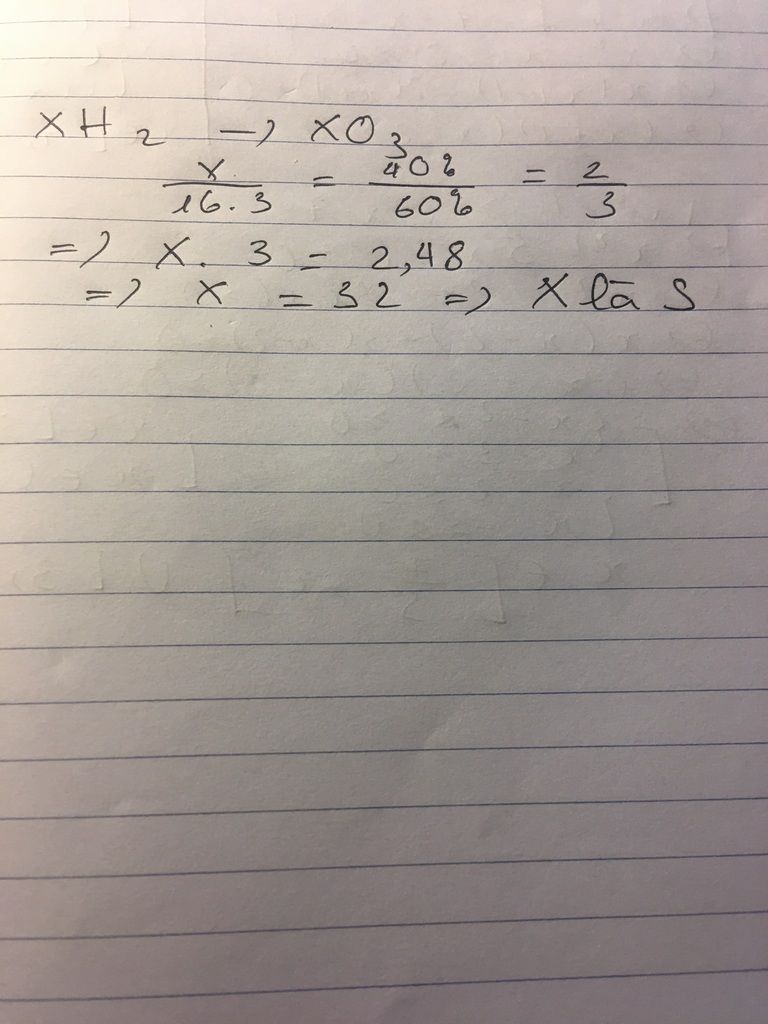 XH2 → XO3
X/16.3 = 40%/60% = 2/3
=> X. 3 = 2,48
=> X = 32 => X là S